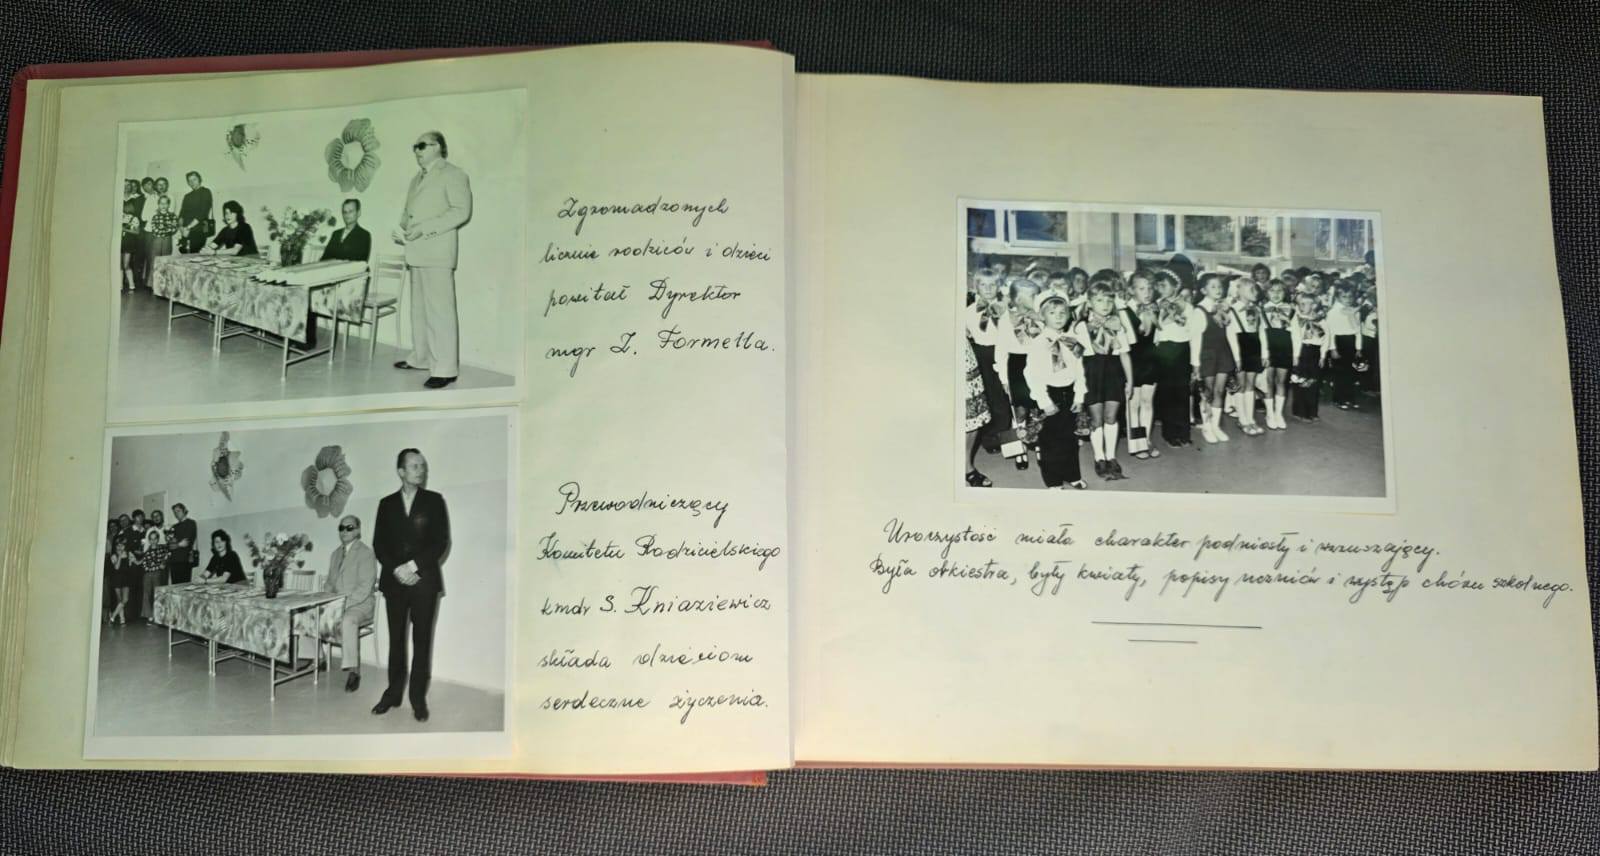 Zgromadzonych
licznie rodziców i dzieci
powitał Dyrektor
mgr Z. Formella.
Przewodniczący
Komitetu Rodzicielskiego
kmdr S. Kniaziewicz
składa dzieciom
serdeczne życzenia.
Uroczystość miała charakter podniosły i wzruszający.
Była orkiestra, były kwiaty, popisy uczniów i występ chóru szkolnego.